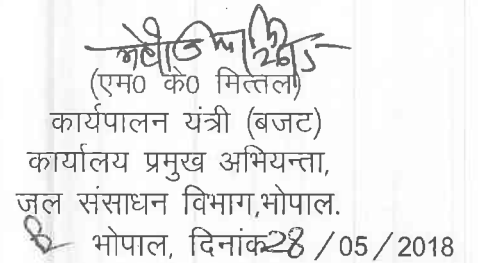 (एम0 के0 मित्तल)
कार्यपालन यंत्री (बजट)
कार्यालय प्रमुख अभियन्ता,
जल संसाधन विभाग,भोपाल.
भोपाल, दिनांक28 / 05 / 2018